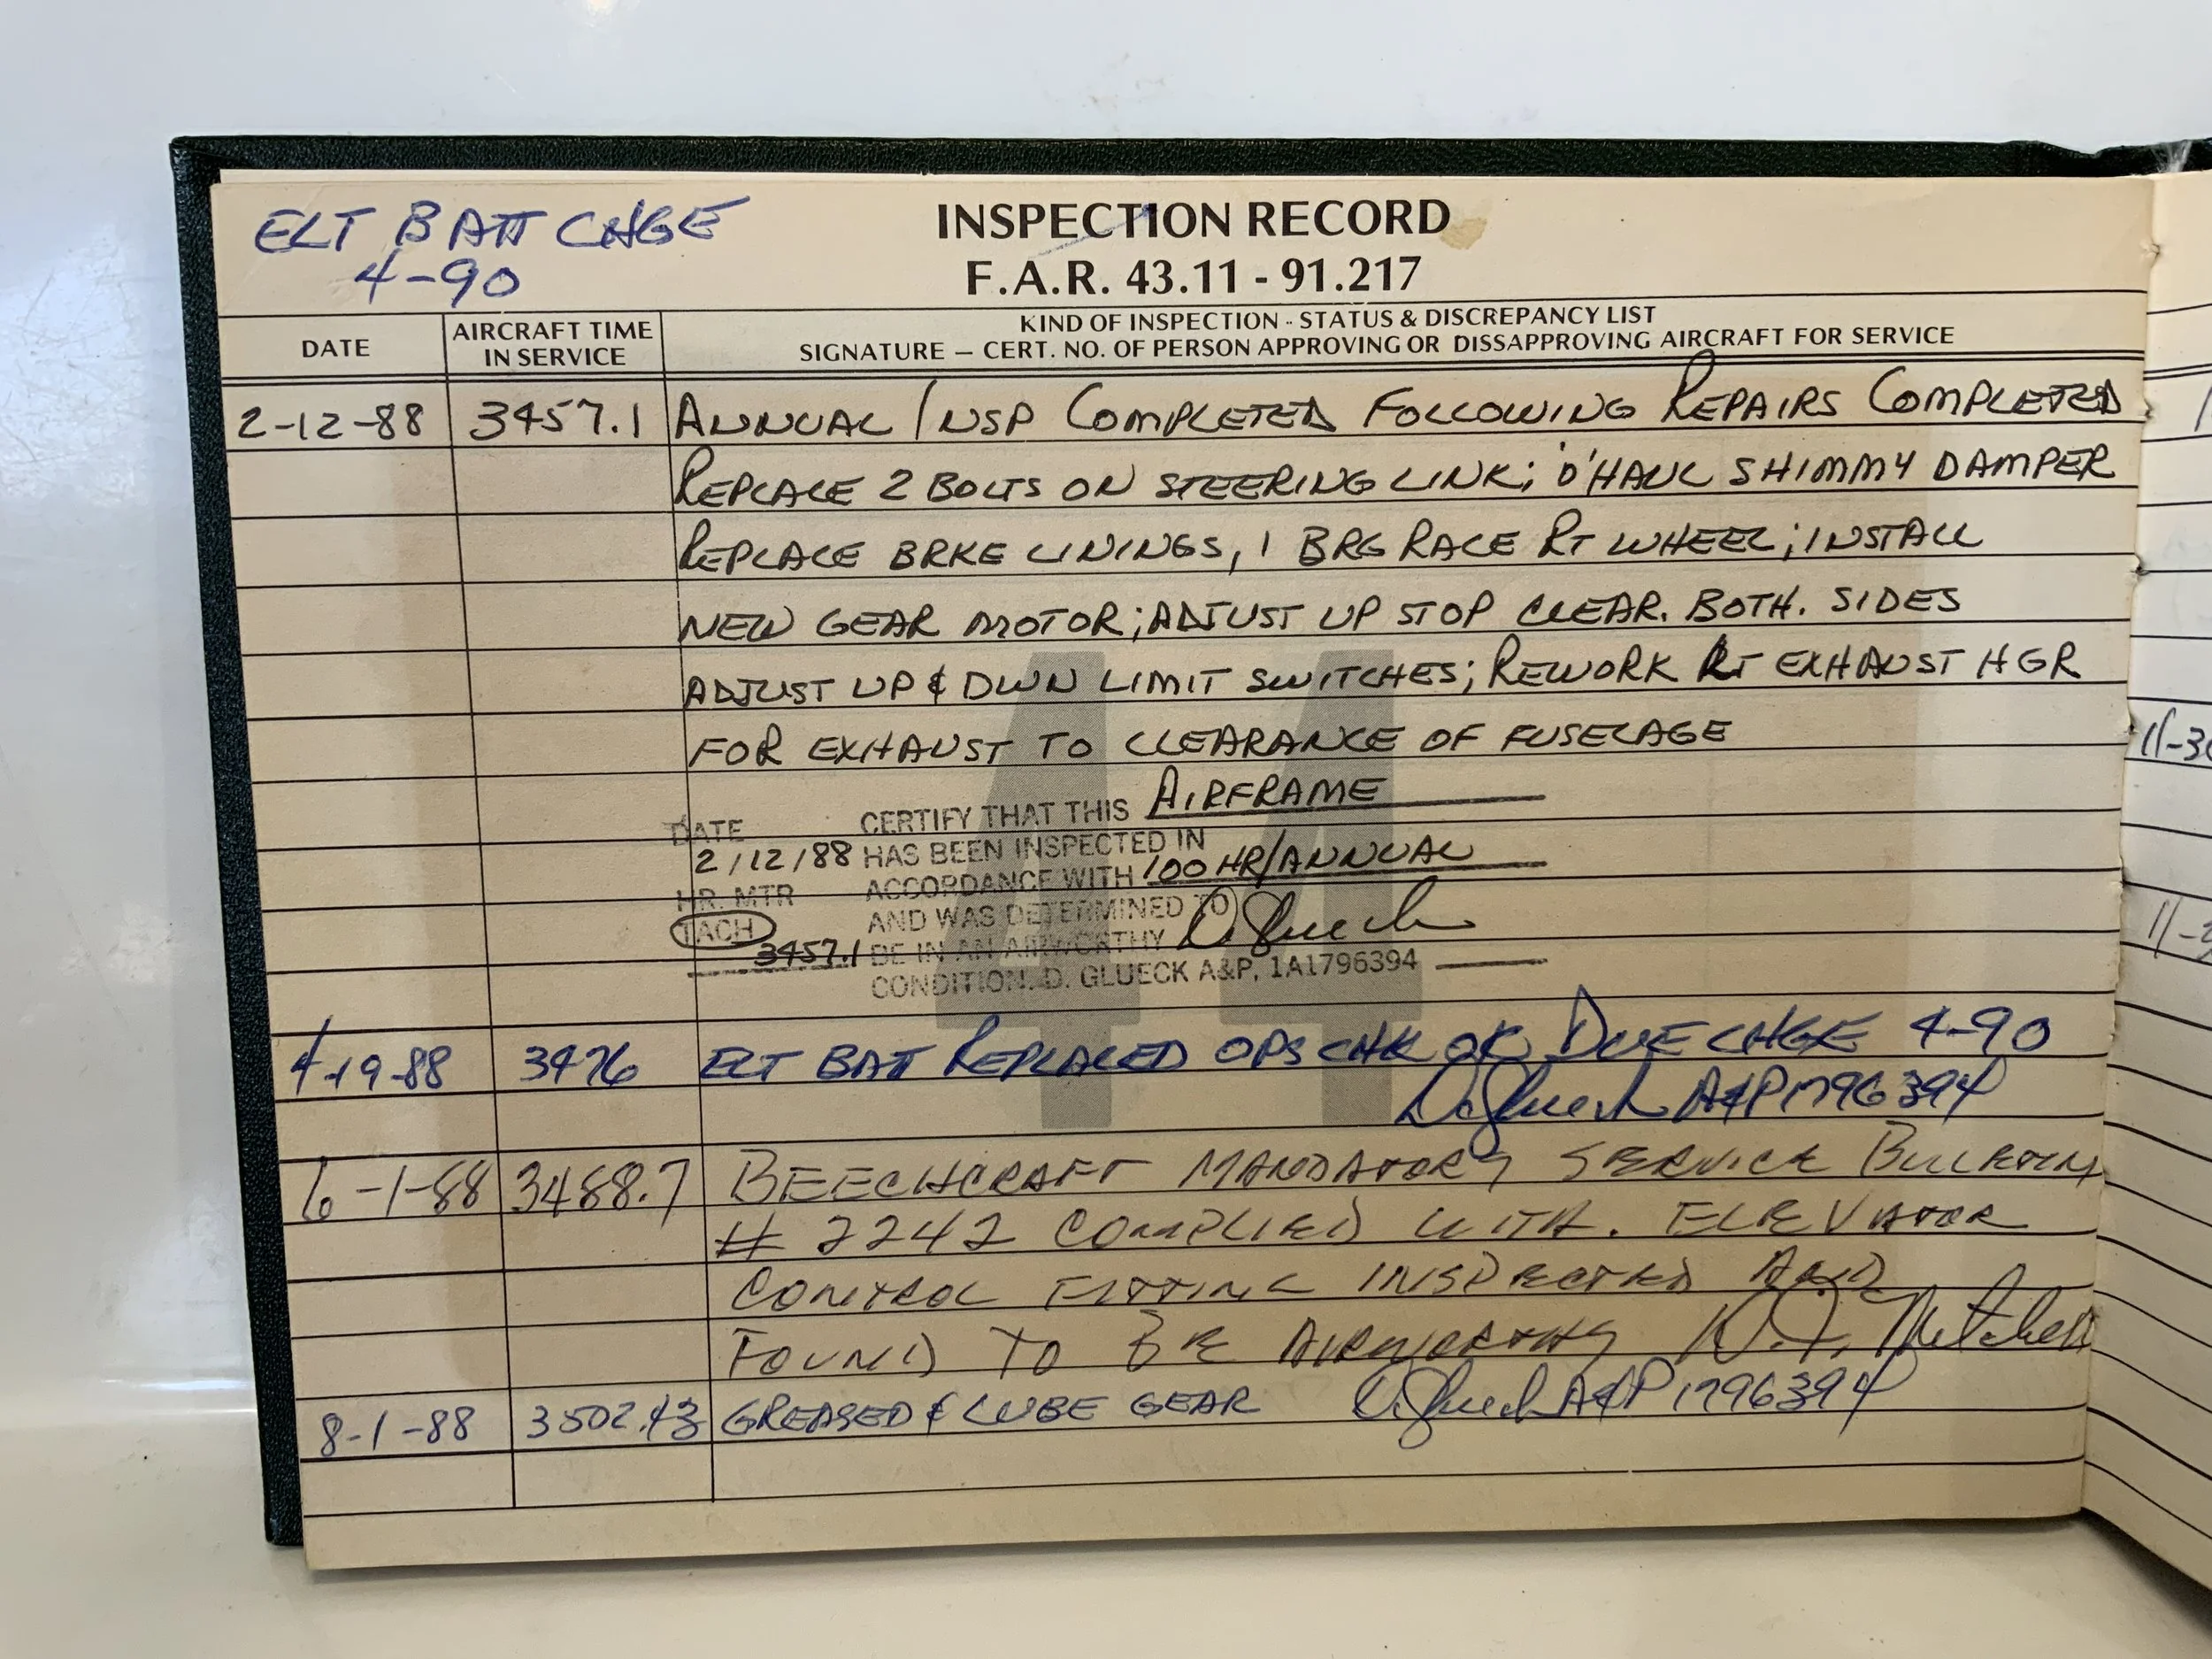 ELT BATT CHGE
4-90
INSPECTION RECORD
F.A.R. 43.11 - 91.217
DATE
AIRCRAFT TIME
IN SERVICE
KIND OF INSPECTION - STATUS & DISCREPANCY LIST
SIGNATURE — CERT. NO. OF PERSON APPROVING OR DISSAPPROVING AIRCRAFT FOR SERVICE
2-12-88 3457.1 ANNUAL INSP COMPLETED FOLLOWING REPAIRS COMPLETED
REPLACE 2 BOLTS ON STEERING LINK; O'HAUL SHIMMY DAMPER
REPLACE BRKE LININGS, 1 BRG RACE RT WHEEL; INSTALL
NEW GEAR MOTOR; ADJUST UP STOP CLEAR. BOTH. SIDES
ADJUST UP & DWN LIMIT SWITCHES; REWORK RT EXHAUST HGR
FOR EXHAUST TO CLEARANCE OF FUSELAGE
44
DATE CERTIFY THAT THIS AIRFRAME
2/12/88 HAS BEEN INSPECTED IN
HR. MTR ACCORDANCE WITH 100 HR/ANNUAL
TACH AND WAS DETERMINED TO D Glueck
3457.1 BE IN AN AIRWORTHY
CONDITION. D. GLUECK A&P, 1A1796394
4-19-88 3476 ELT BATT REPLACED OPS CHK OK DUE CHGE 4-90
D Glueck A&P 1796394
6-1-88 3488.7 BEECHCRAFT MANDATORY SERVICE BULLETIN
# 2242 COMPLIED WITH. ELEVATOR
CONTROL FITTING INSPECTED AND
FOUND TO BE AIRWORTHY Mitchell
8-1-88 GREASED & LUBE GEAR D Glueck A&P 1796394